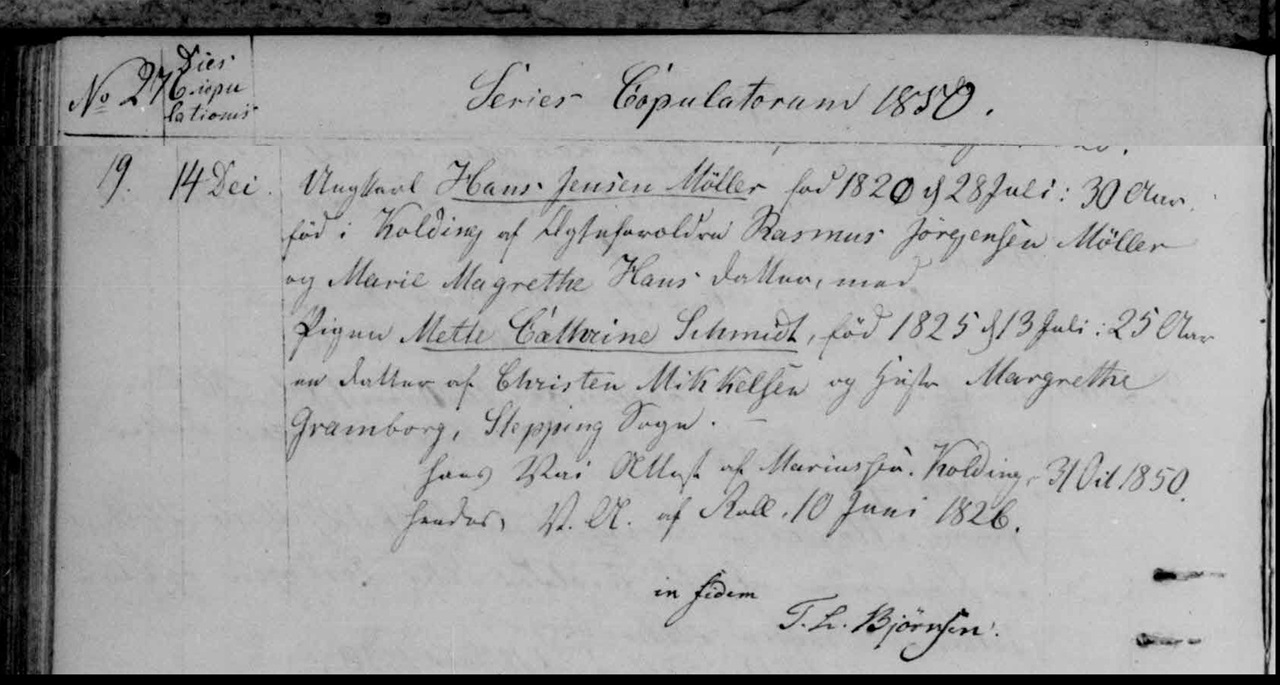 No 27
Dies
Copu
lationis
Series Copulatorum 1850.
19. 14 Dec. Ungkarl Hans Jensen Möller född 1820 d 28 Juli : 30 Aar.
född i Kolding af Ægteforældre Rasmus Jörgensen Möller
og Marie Magrethe Hans datter, med
Pigen Mette Cathrine Schmidt, född 1825 d 13 Juli : 25 Aar
en datter af Christen Mikkelsen og Hustr Margrethe
Gramborg, Stepping Sogn.
hans Vac Attest af Kolding, 31 Oct 1850.
hendes, V. A. af 10 Juni 1826.
in fidem
T. L. Björnsen.